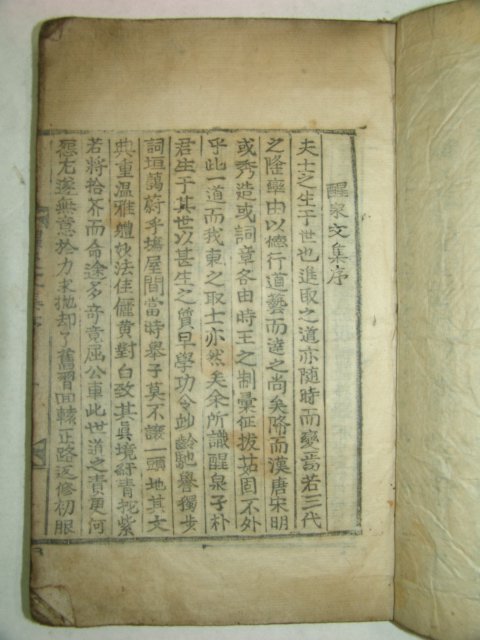 醒泉文集序
夫士之生于世也進取之道亦隨時而變焉若三代
之隆率由以德行道藝而達之尚矣降而漢唐宋明
或秀造或詞章各由時王之制彙征拔茹固不外
乎此一道而我東之取士亦然矣余所識醒泉子朴
君生于其世以甚生之質早學功令妙齡馳譽獨步
詞垣藹蔚乎場屋間當時擧子莫不讓一頭地其文
典重溫雅體妙法佳儷黃對白改其眞境紆青拖紫
若將拾芥而命途多奇竟屈公車此世道之責更何
怨尤遂無意於力求抛却了舊習回轅正路返修初服